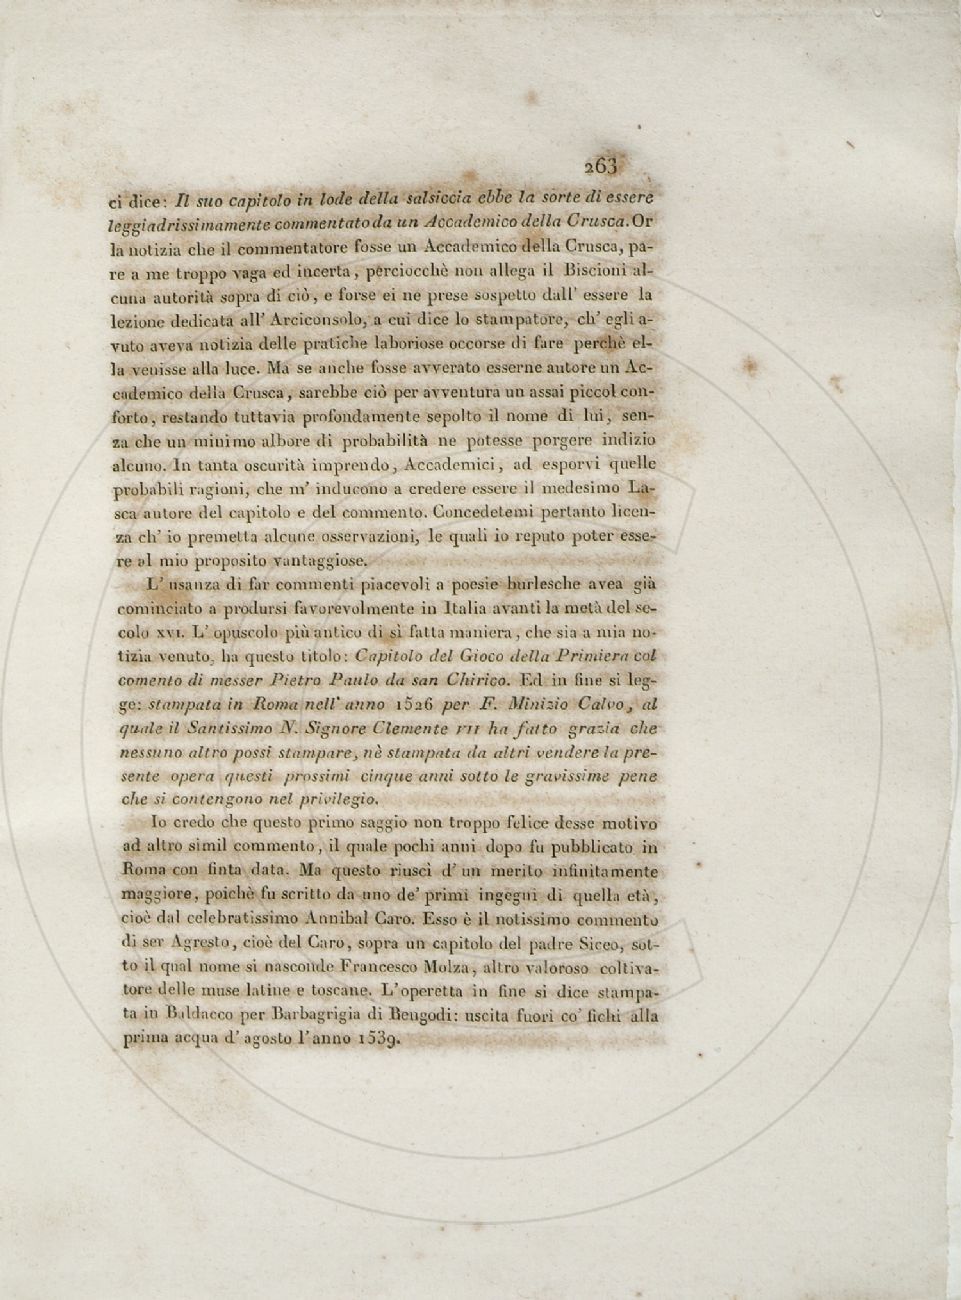 263
ci dice: Il suo capitolo in lode della salsiccia ebbe la sorte di essere
leggiadrissimamente commentato da un Accademico della Crusca. Or
la notizia che il commentatore fosse un Accademico della Crusca, pa-
re a me troppo vaga ed incerta, perciocchè non allega il Biscioni al-
cuna autorità sopra di ciò, e forse ei ne prese sospetto dall' essere la
lezione dedicata all' Arciconsolo, a cui dice lo stampatore, ch' egli a-
vuto aveva notizia delle pratiche laboriose occorse di fare perchè el-
la venisse alla luce. Ma se anche fosse avverato esserne autore un Ac-
cademico della Crusca, sarebbe ciò per avventura un assai piccol con-
forto, restando tuttavia profondamente sepolto il nome di lui, sen-
za che un minimo albore di probabilità ne potesse porgere indizio
alcuno. In tanta oscurità imprendo, Accademici, ad esporvi quelle
probabili ragioni, che m' inducono a credere essere il medesimo La-
sca autore del capitolo e del commento. Concedetemi pertanto licen-
za ch' io premetta alcune osservazioni, le quali io reputo poter esse-
re al mio proposito vantaggiose.
L' usanza di far commenti piacevoli a poesie burlesche avea già
cominciato a prodursi favorevolmente in Italia avanti la metà del se-
colo XVI. L' opuscolo più antico di sì fatta maniera, che sia a mia no-
tizia venuto, ha questo titolo: Capitolo del Gioco della Primiera col
comento di messer Pietro Paulo da san Chirico. Ed in fine si leg-
ge: stampata in Roma nell' anno 1526 per F. Minizio Calvo, al
quale il Santissimo N. Signore Clemente VII ha fatto grazia che
nessuno altro possi stampare, nè stampata da altri vendere la pre-
sente opera questi prossimi cinque anni sotto le gravissime pene
che si contengono nel privilegio.
Io credo che questo primo saggio non troppo felice desse motivo
ad altro simil commento, il quale pochi anni dopo fu pubblicato in
Roma con finta data. Ma questo riuscì d' un merito infinitamente
maggiore, poichè fu scritto da uno de' primi ingegni di quella età,
cioè dal celebratissimo Annibal Caro. Esso è il notissimo commento
di ser Agresto, cioè del Caro, sopra un capitolo del padre Siceo, sot-
to il qual nome si nasconde Francesco Molza, altro valoroso coltiva-
tore delle muse latine e toscane. L'operetta in fine si dice stampa-
ta in Baldacco per Barbagrigia di Bengodi: uscita fuori co' fichi alla
prima acqua d' agosto l'anno 1539.